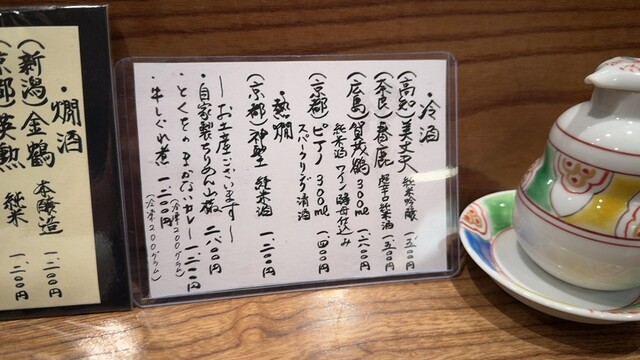 ・冷酒
(高知)美丈夫 純米吟醸 一、五〇〇円
(奈良)春鹿 超辛口純米酒 一、五〇〇円
(広島)賀茂鶴 300ml 一、六〇〇円
純米酒 ワイン酵母仕込み
(京都)ピアノ 300ml 一、四〇〇円
スパークリング清酒
・熱燗
(京都)神聖 純米酒 一、二〇〇円
〜お土産ございます〜
・自家製ちりめん山椒 二、八〇〇円
・とくをのまかないカレー 一、二〇〇円
(冷凍200グラム)
・牛しぐれ煮 一、二〇〇円
(冷凍200グラム)
・燗酒
(新潟)金鶴 本醸造 一、二〇〇円
(京都)英勲 純米 一、二〇〇円